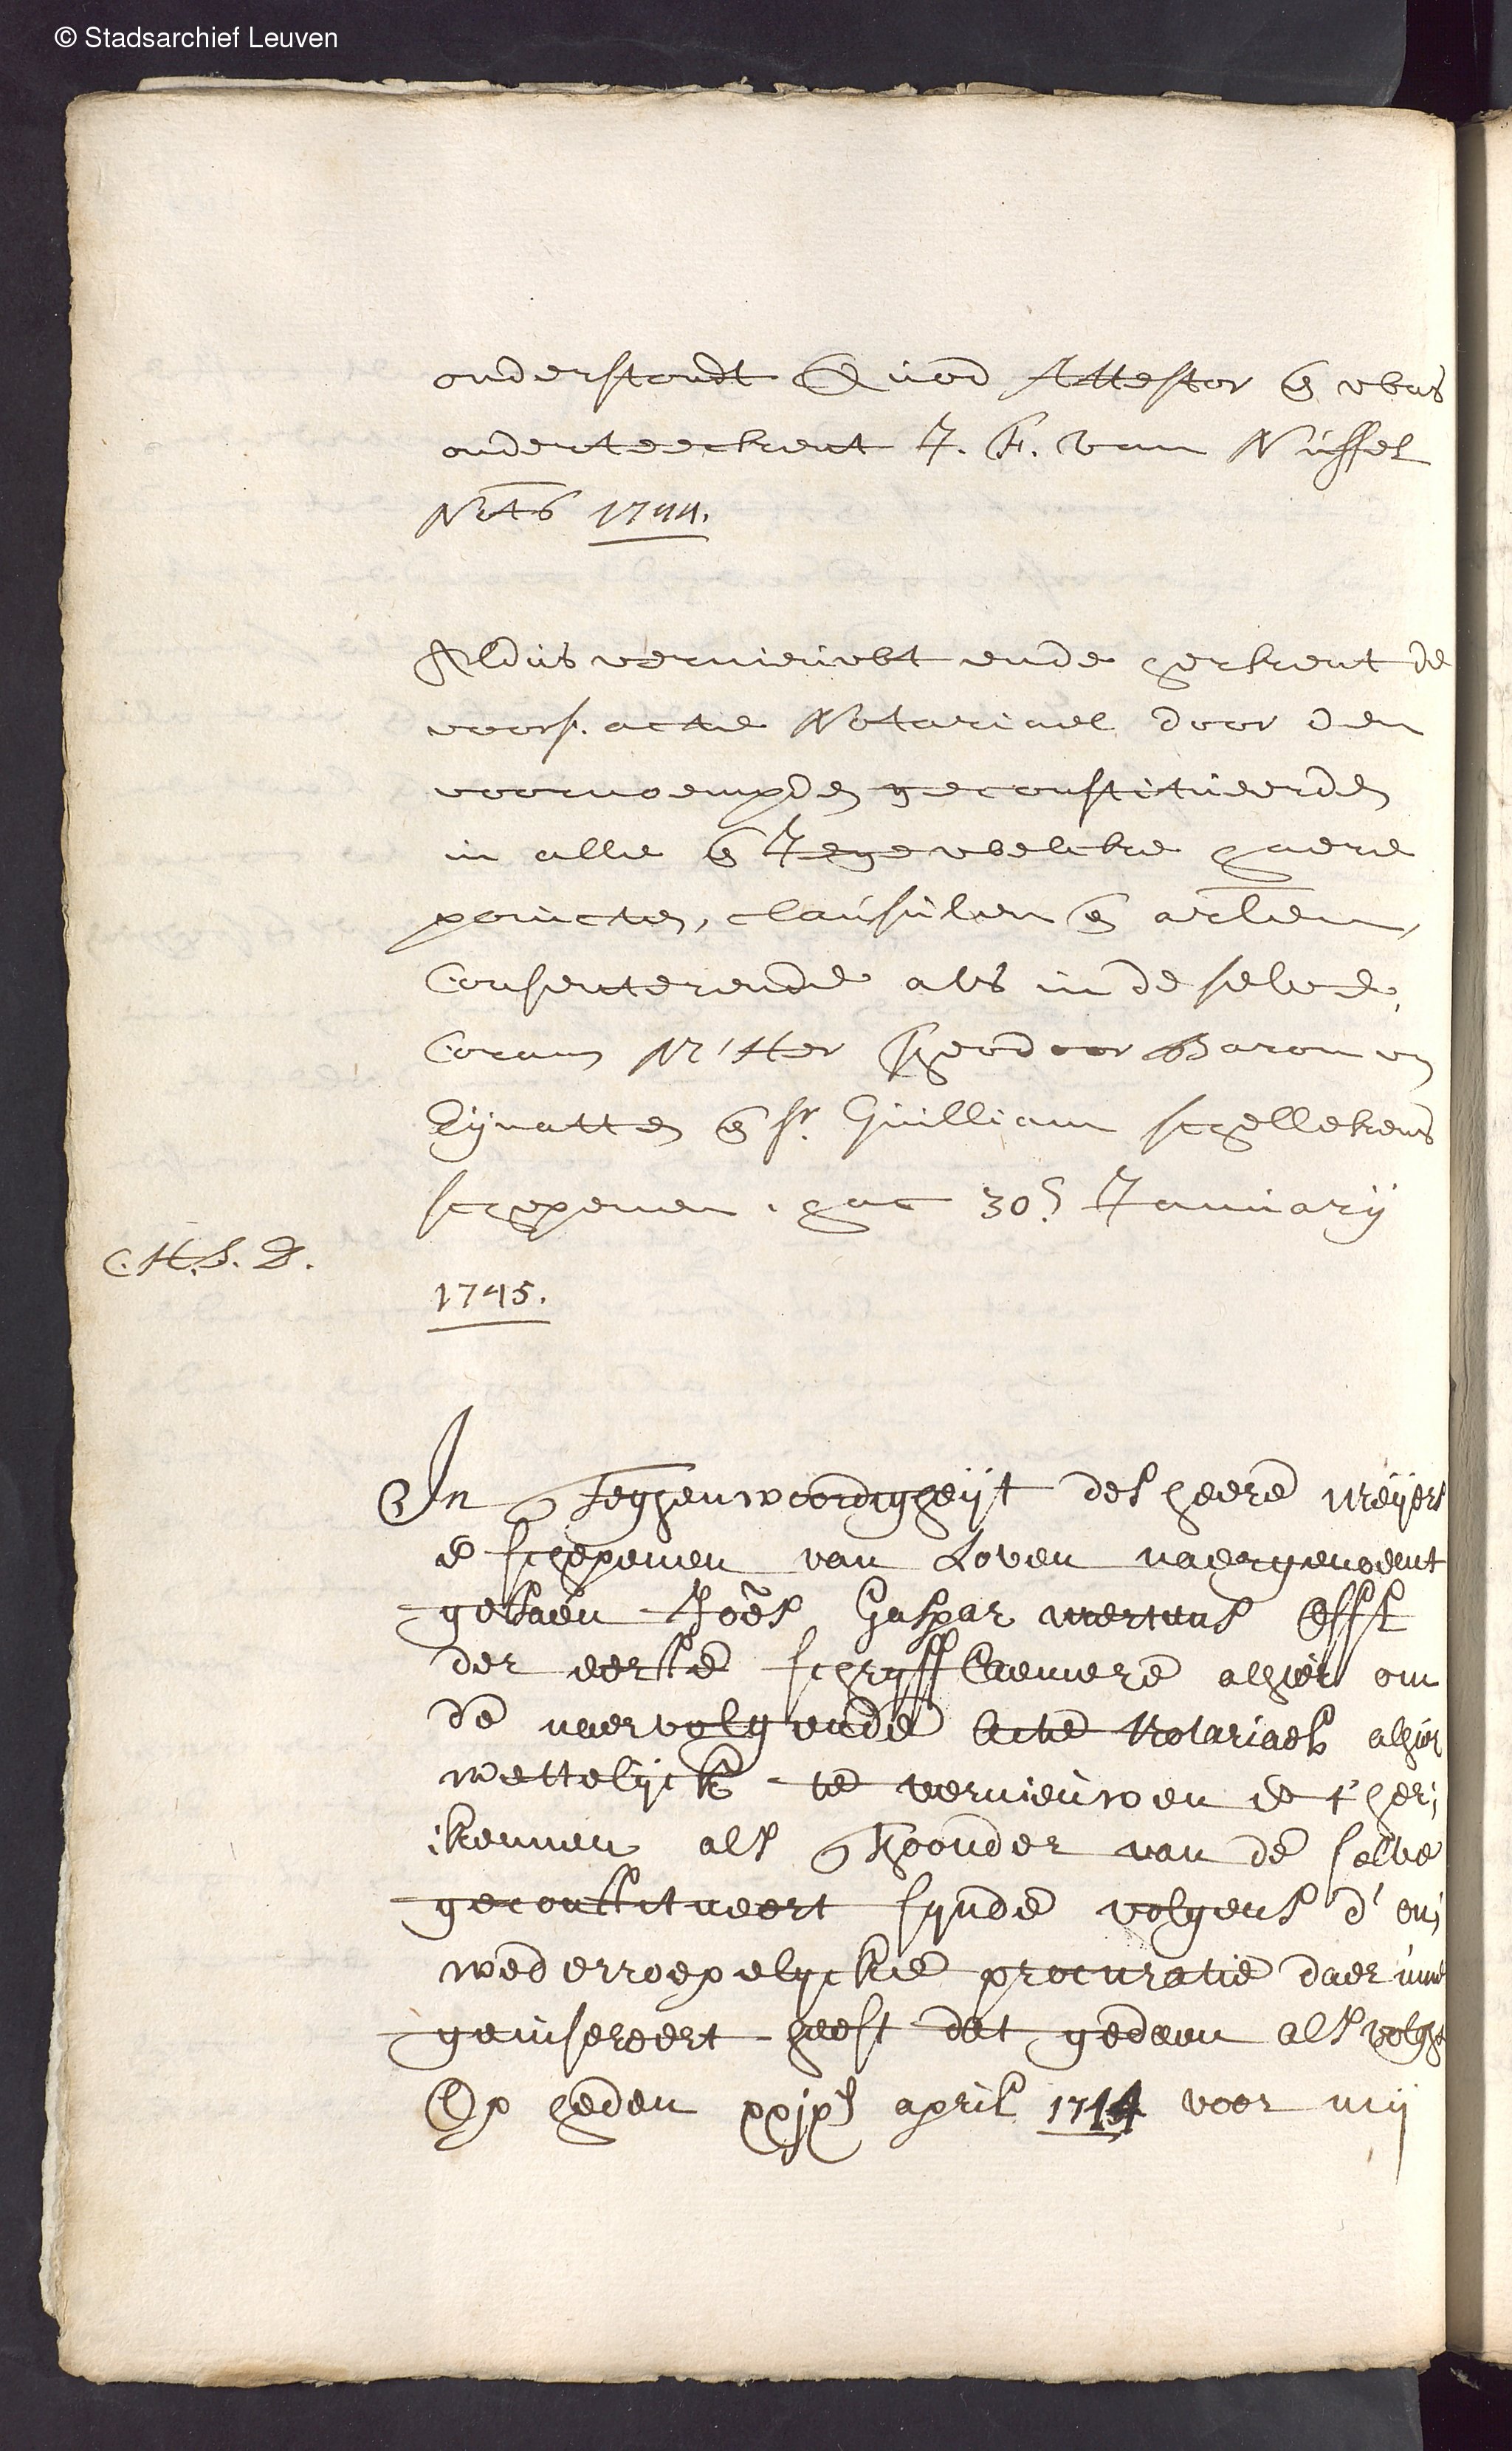 © Stadsarchief Leuven
onderstondt Quod Attestor en was
onderteeckent J. F. van Nuffel
Nots 1744.
Aldus vernieuwt ende gerkent de
voors. acte Notariael door den
voornoempden geconstitueerden
in alle en Jegewelcke haere
poincten, clausulen en arlen,
Consenterende als in de selve,
Coram Mher Theodoor Baron van
Eijnatten en sr. Guilliam schellekens
schepenen. hac 30s January
C.H.S.D.
1745.
In Teghenwoordigheijt des heere meijers
en schepenen van Loven naergenoemt
gestaen Joes Gaspar mertens
der eerste schryffcaemere alhier om
de naervolgende Acte Notariael alhier
wettelijck te vernieuwen en t'her;
;kennen als Thoonder van de selve
geconstitueert synde volgens d'on;
wederroepelycke procuratie daer inne
geinsereert heeft dat gedaen als volght
Op heden xxjxs april 1714 voor mij